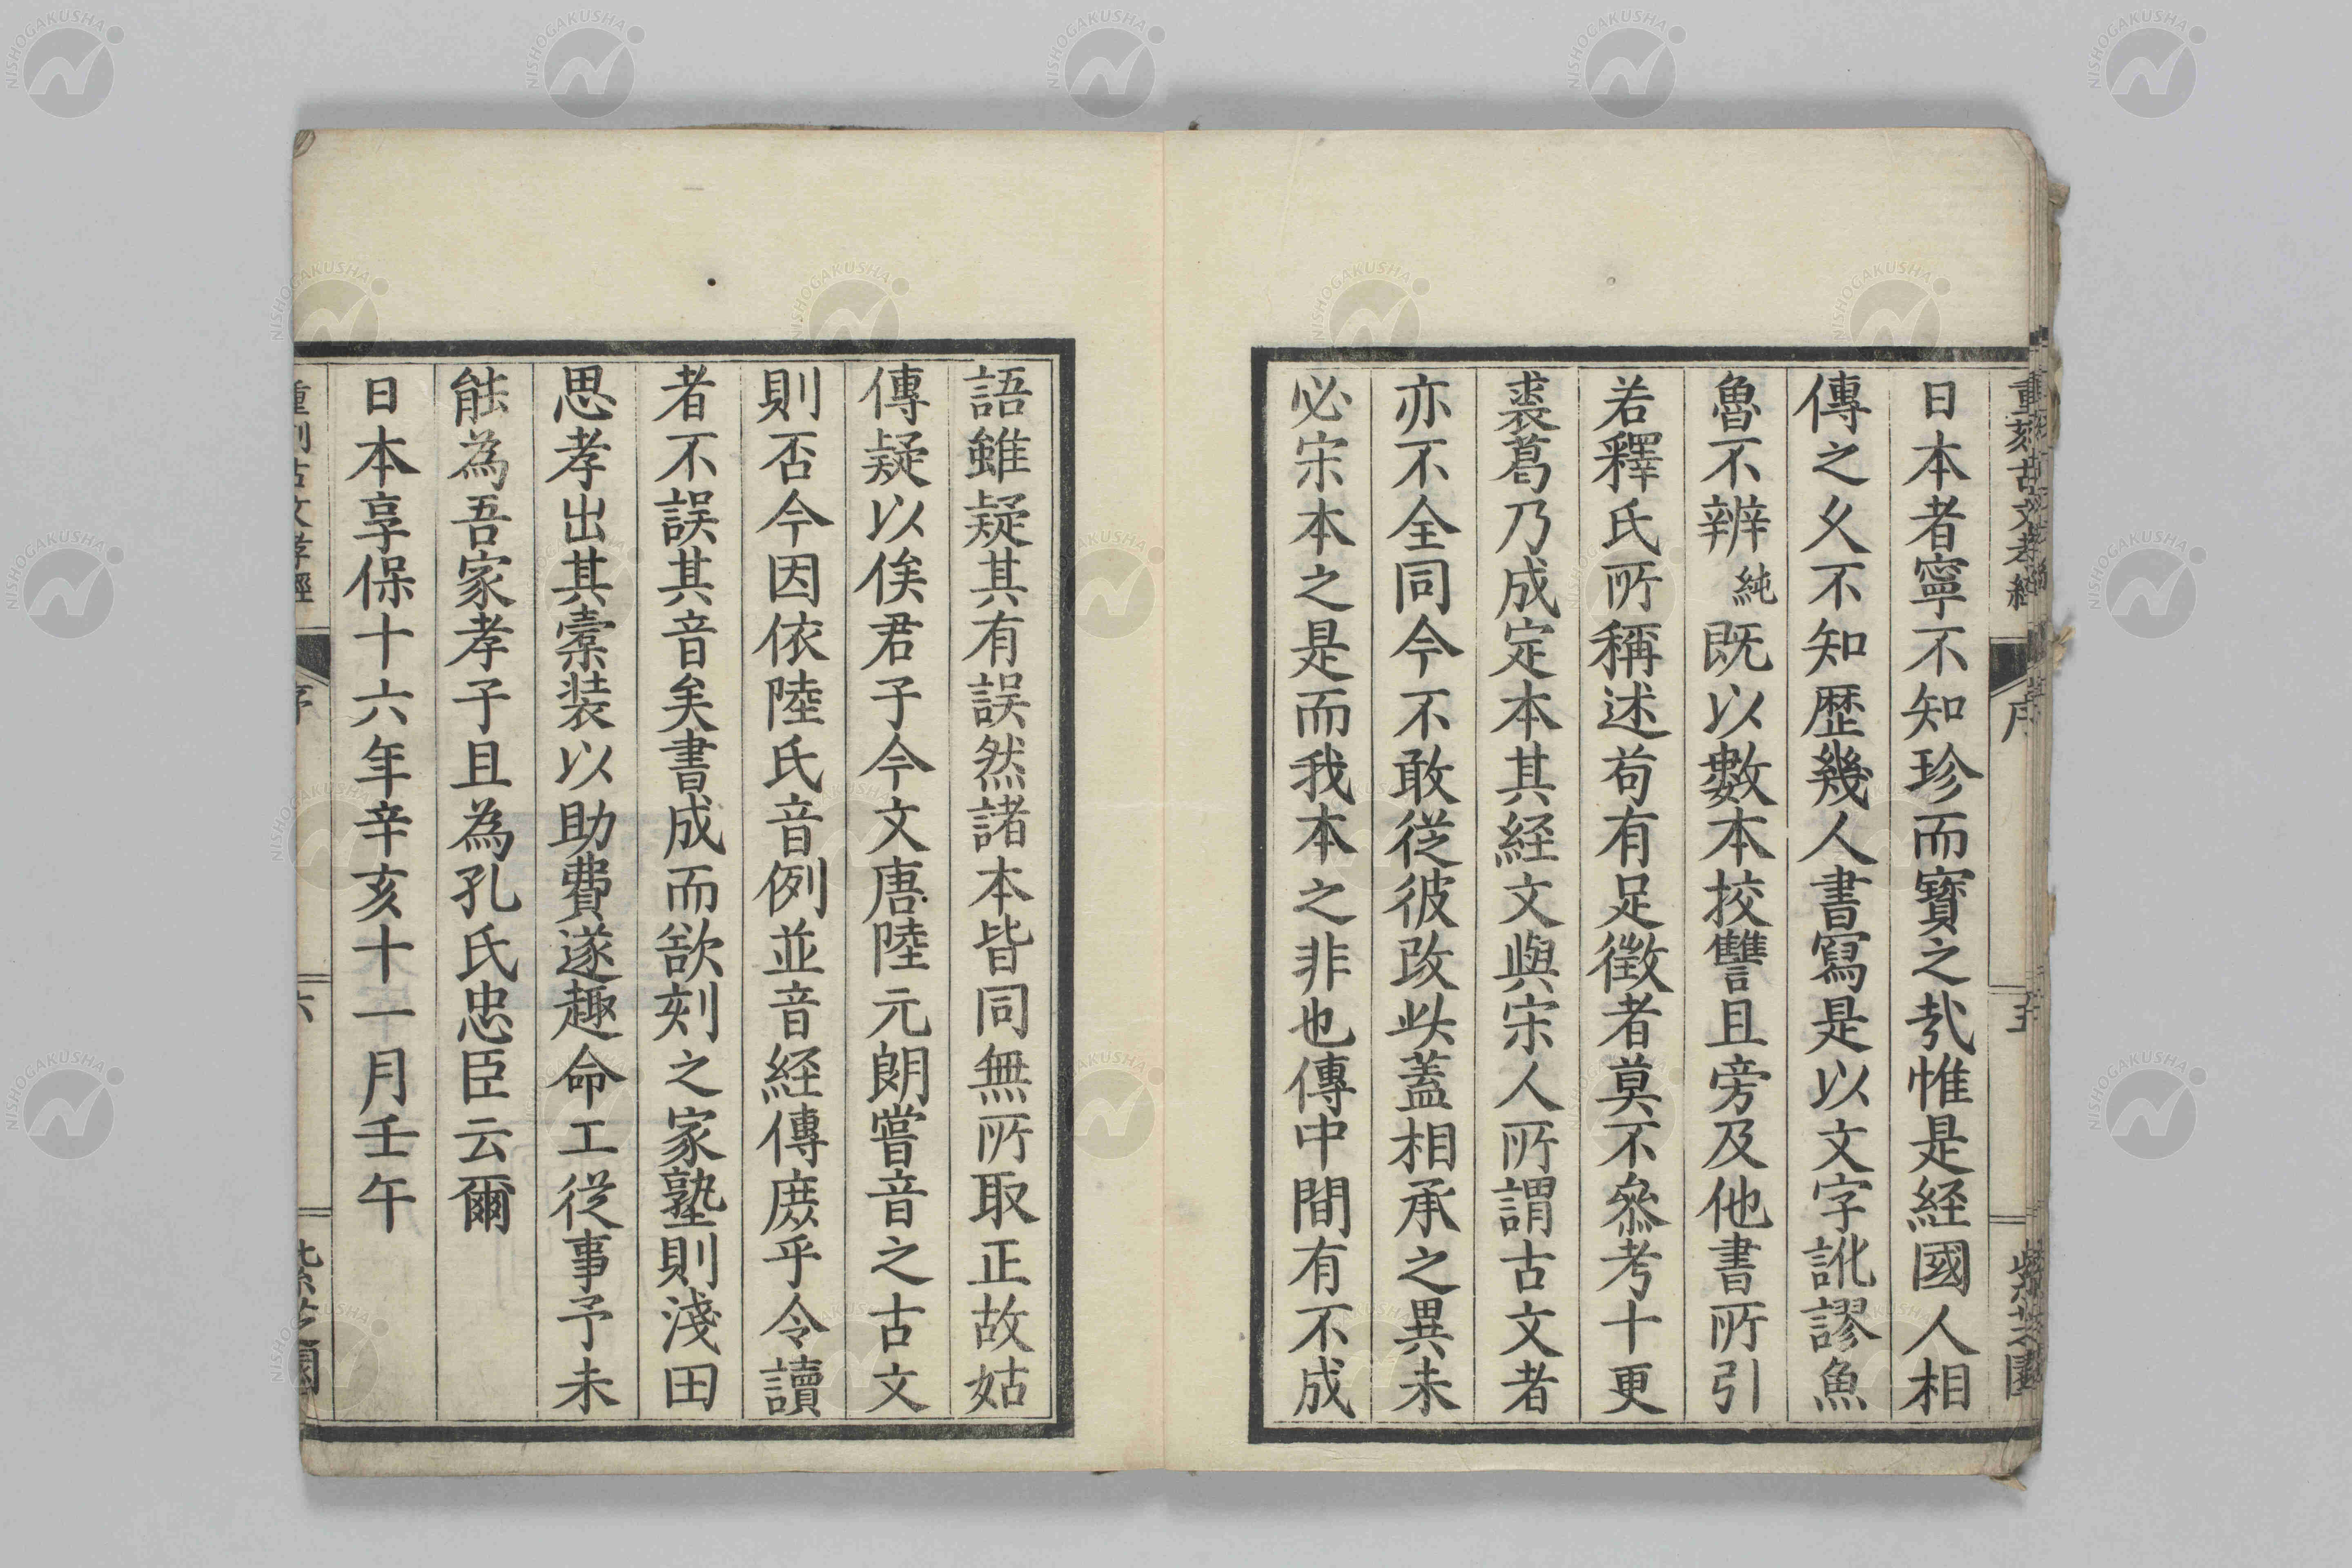 重刻古文孝經 序 五 紫芝園
日本者寧不知珍而寶之㢤惟是経國人相
傳之乆不知歴幾人書寫是以文字訛謬魚
魯不辨純既以數本挍讐且旁及他書所引
若釋氏所稱述苟有足徴者莫不叅考十更
裘葛乃成定本其経文與宋人所謂古文者
亦不全同今不敢従彼改此蓋相承之異未
必宋本之是而我本之非也傳中間有不成
語雖疑其有誤然諸本皆同無所取正故姑
傳疑以俟君子今文唐陸元朗嘗音之古文
則否今因依陸氏音例並音経傳庶乎令讀
者不誤其音矣書成而欲刻之家塾則淺田
思孝出其槖装以助費遂趣命工従事予未
能為吾家孝子且為孔氏忠臣云爾
日本享保十六年辛亥十一月壬午
重刻古文孝經 序 六 紫芝園
NISHOGAKUSHA